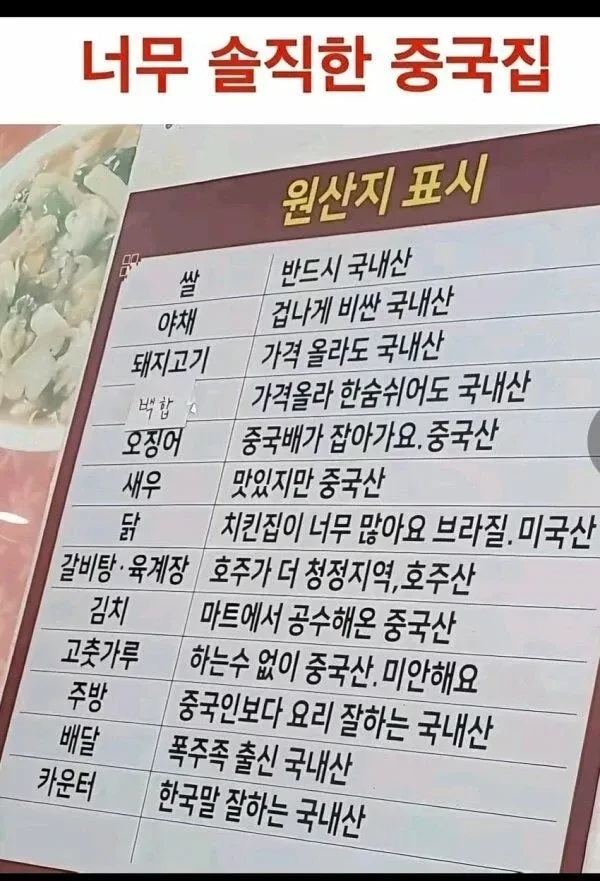 너무 솔직한 중국집
원산지 표시
쌀 반드시 국내산
야채 겁나게 비싼 국내산
돼지고기 가격 올라도 국내산
백합 가격올라 한숨쉬어도 국내산
오징어 중국배가 잡아가요. 중국산
새우 맛있지만 중국산
닭 치킨집이 너무 많아요 브라질. 미국산
갈비탕·육계장 호주가 더 청정지역,호주산
김치 마트에서 공수해온 중국산
고춧가루 하는수 없이 중국산. 미안해요
주방 중국인보다 요리 잘하는 국내산
배달 폭주족 출신 국내산
카운터 한국말 잘하는 국내산